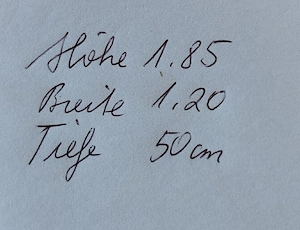 Höhe 1.85
Breite 1.20
Tiefe 50cm